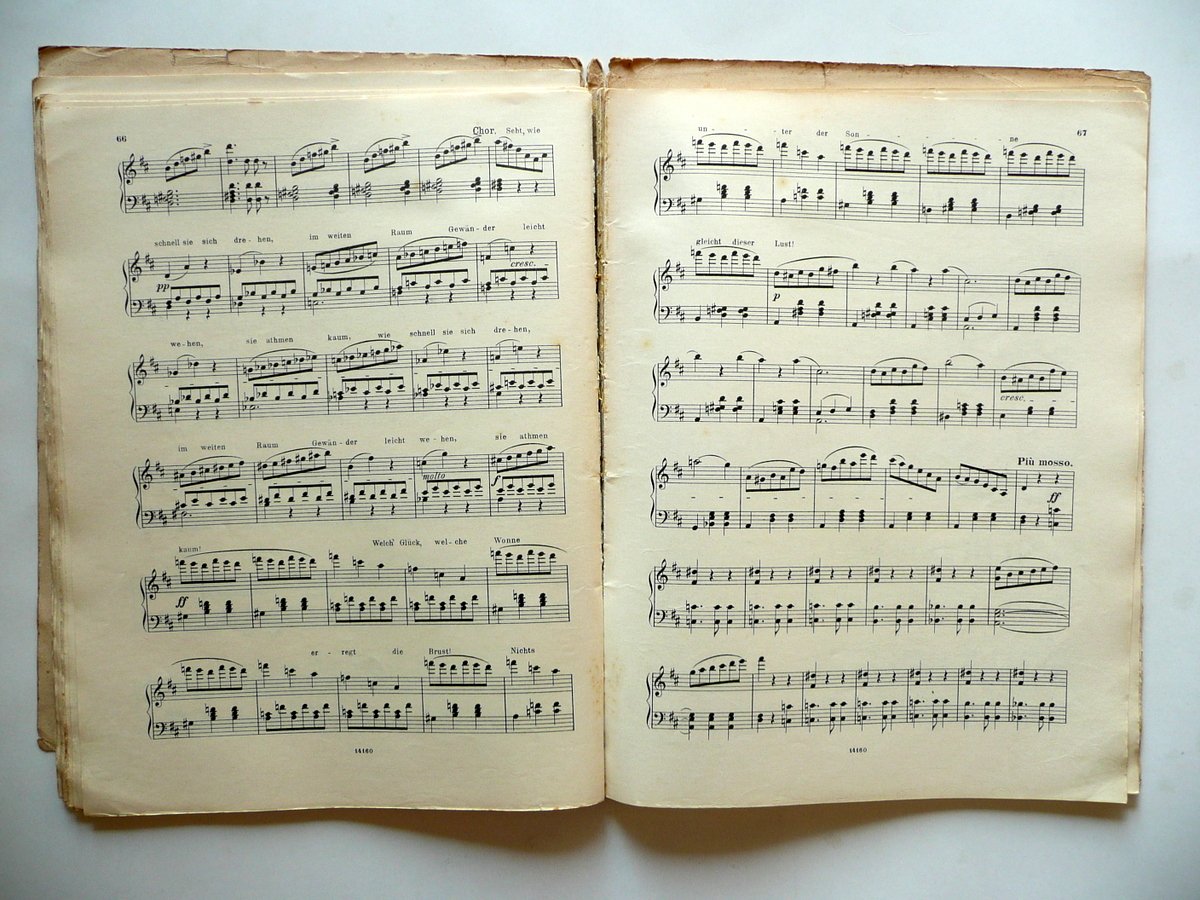 66
Chor. Seht, wie
schnell sie sich dre - hen, im weiten Raum Gewän - der leicht
pp
cresc.
we - hen, sie athmen kaum, wie schnell sie sich dre - hen,
im weiten Raum Gewän - der leicht we - hen, sie athmen
molto
f
kaum! Welch' Glück, wel - che Wonne
ff
er - regt die Brust! Nichts
14160
67
un - - - ter der Son - - - - - - ne
gleicht dieser Lust!
p
cresc.
Più mosso.
ff
14160